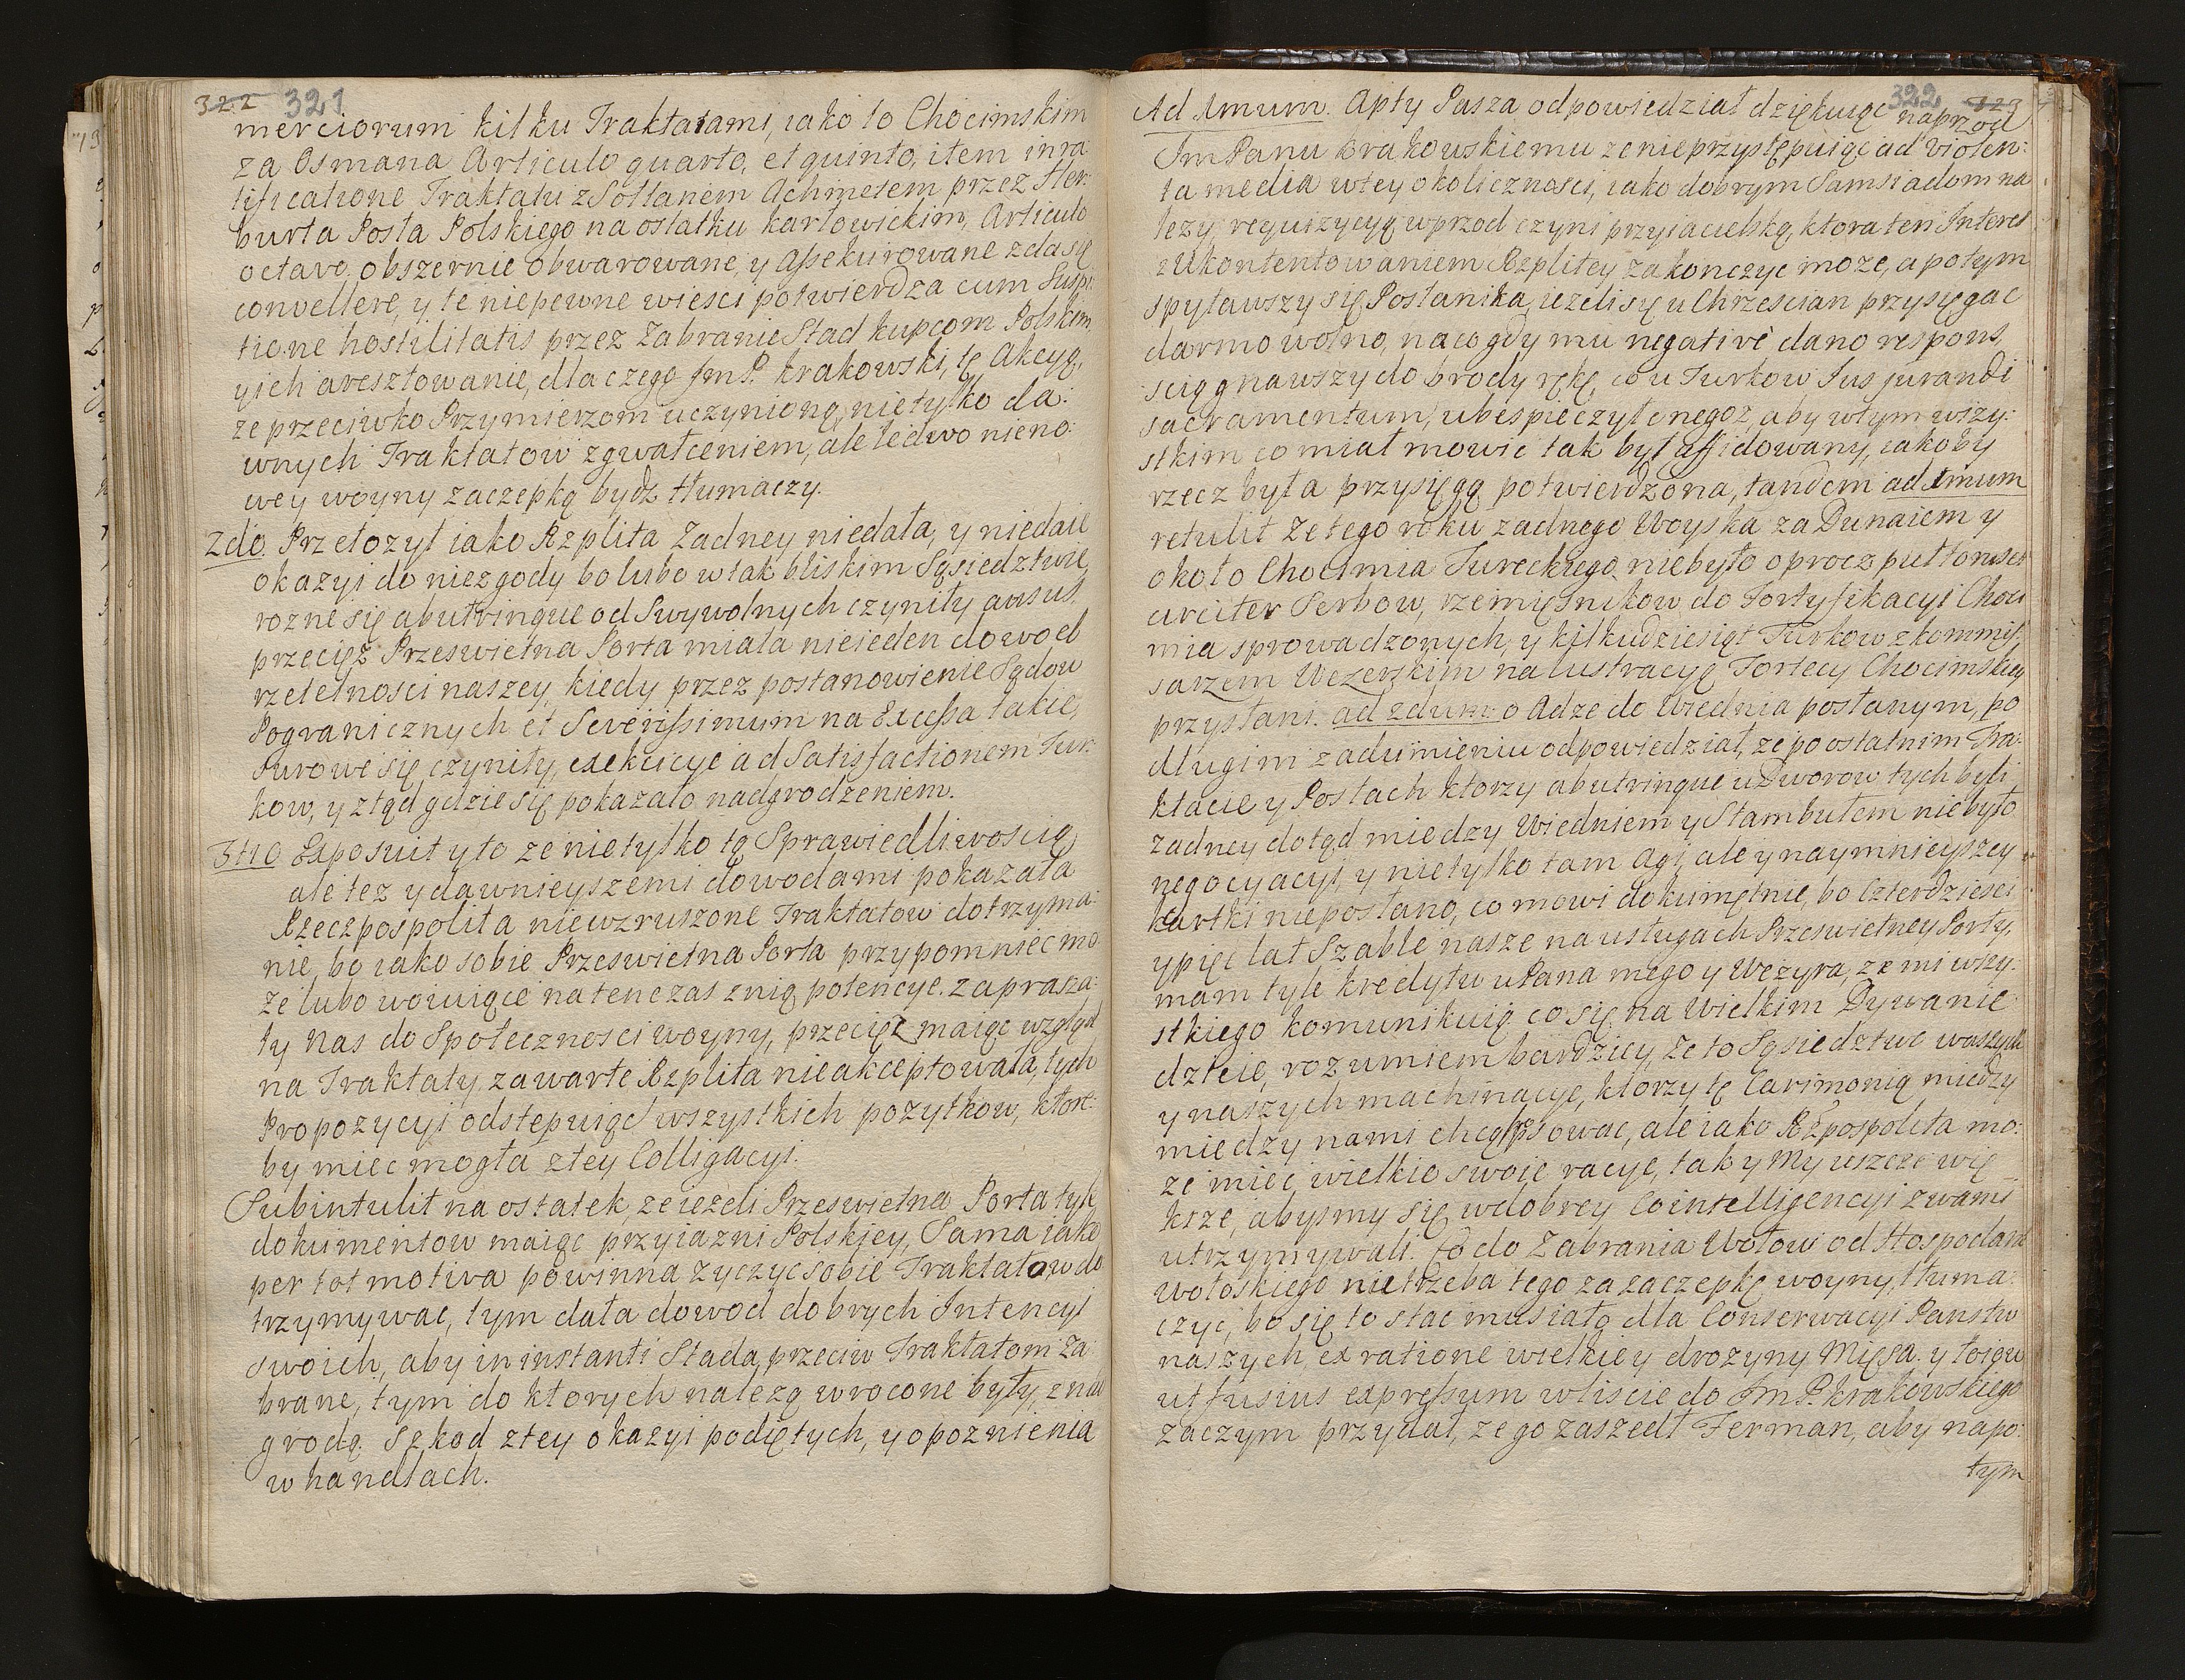 322 321
merciorum kilku Traktatami, iako to Chocimskim
za Osmana Articulo quarto, et quinto, item in ra
tificatione Traktatu z Sołtanem Achmetem przez Her:
burta Posła Polskiego na ostatku karłowickim, Articulo
octavo obszernie obwarowane, y assekurowane zda się
convellere, y te niepewne wiesci potwierdza cum Suspi:
tione hostilitatis przez Zabranie Stad kupcom Polskim,
yich aresztowanie, dla czego Jm P. krakowski, tę Akcyą,
ze przeciwko Przymierzom uczynioną, nie tylko da:
wnych Traktatow zgwałceniem, ale ledwo nie no:
wey woyny zaczepką bydz tłumaczy.
2do. Przełozył iako Rzplita Zadney niedała, y niedaie
okazyi do niezgody bo lubo w tak bliskim Sąsiedztwie,
rozne się abutrinque od Swywolnych czyniły ausus,
przecięz Przeswietna Porta miała nieieden dowod
rzetelnosci naszey, kiedy przez postanowienie Sądow
Pogranicznych et Severissimum na Excessa takie,
Surowe się czyniły, exekucye ad Satisfactionem Tur:
kow, y ztąd gdzie się pokazało nadgrodzeniem.
3tio Exposuit y to ze nie tylko tą Sprawiedliwoscią
ale tez y dawnieyszemi dowodami pokazała
Rzeczpospolita niewzruszone Traktatow dotrzyma:
nie, bo iako sobie Przeswietna Porta przypomniec mo
ze lubo woiuiące na ten czas z nią potencye zaprasza:
ły Nas do Społecznosci woyny, przecięz maiąc wzgląd
na Traktaty zawarte Rzplita nie akceptowała, tych
Propozycyi odstępuiąc wszystkich pozytkow, ktore:
by miec mogła z tey Colligacyi.
Subintulit na ostatek, ze iezeli Przeswietna Porta tyle
dokumentow maiąc przyiazni Polskiey, Sama iako
per tot motiva powinna zyczyc sobie Traktatow do
trzymywac, tym dała dowod dobrych Intencyi
swoich, aby in instanti Stada, przeciw Traktatom Za:
brane, tym do ktorych nalezą wrocone były, z nad
grodą Szkod z tey okazyi podiętych, y opoznienia
w handlach.
322 323
Ad 1mum. Apty Pasza odpowiedział dziękuiąc naprzod
Jm Panu krakowskiemu ze nieprzystępuiąc ad violen:
ta media w tey okolicznosci, iako dobrym Samsiadom na
lezy, requizycyą wprzod czyni przyiacielską, ktora ten Interes
z Ukontentowaniem Rzplitey zakonczyc moze, a potym
spytawszy się Posłanika, iezeli się u Chrzescian przysięgac
darmo wolno, na co gdy mu negativè dano respons,
sciągnawszy do brody rękę, co u Turkow Jus jurandi
sacramentum, ubespieczył onegoz, aby w tym wszy:
stkim co miał mowic tak był affidowany, iakoby
rzecz była przysięgą potwierdzona, tandem ad 1mum
retulit Ze tego roku zadnego Woyska za Dunaiem y
około Chocimia Tureckiego niebyło oprocz pułtoraset
circiter Serbow, rzemięsnikow do Fortyfikacyi Choci
mia sprowadzonych, y kilkudziesiąt Turkow z kommis:
sarzem Wezerskim na lustracyę Fortecy Chocimskiey
przysłani. ad 2dum o Adze do Wiednia posłanym, po
długim zadumieniu odpowiedział, ze po ostatnim Tra:
ktacie y Posłach ktorzy abutrinque u Dworow tych byli
zadney dotąd miedzy Wiedniem y Stambułem niebyło
negocyacyi, y nietylko tam Agi, ale y naymnieyszey
kartki nieposłano, co mowi dokumętnie, bo Czterdziesci
y pięc lat Szable nasze na usługach Przeswietney Porty,
mam tyle kredytu u Pana mego y Wezyra, ze mi wszy:
stkiego komunikuią co się na Wielkim Dywanie
dzieie, rozumiem bardziey, ze to Sąsiedztwo waszych
y naszych machinacye, ktorzy tę Carimonią miedzy
miedzy nami chcą psowac, ale iako Rzpospolita mo:
ze miec wielkie swoie racye, tak y My ieszcze wię
ksze, abysmy się w dobrey Cointelligencyi z wami
utrzymywali. Co do Zabrania Wołow od Hospodara
Wołoskiego nietrzeba tego za zaczepkę woyny, tłuma
czyc, bo się to stac musiało dla Conserwacyi Panstw
naszych, ex ratione wielkiey drozyny Mięsa y łoigu
ut fusius expressum w liscie do Jm P. krakowskiego
zaczym przydał, ze go zaszedł Ferman, aby napo:
tym